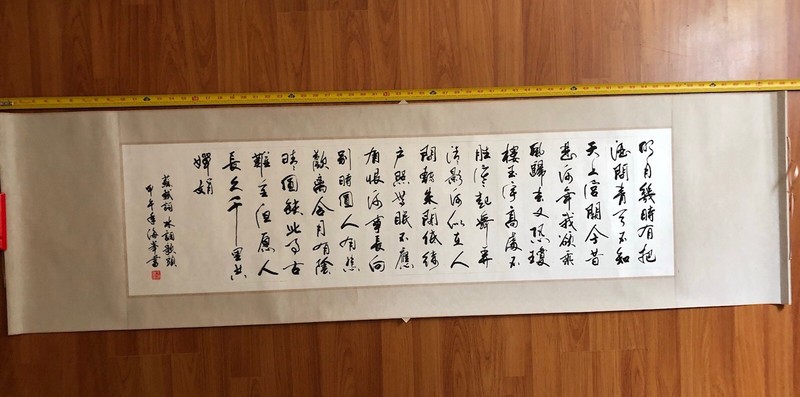 明月幾時有把
酒問青天不知
天上宮闕今昔
是何年我欲乘
風歸去又恐瓊
樓玉宇高處不
勝寒起舞弄
清影何似在人
間轉朱閣低綺
戶照無眠不應
有恨何事長向
別時圓人有悲
歡離合月有陰
晴圓缺此事古
難全但願人
長久千里共
嬋娟
蘇軾詞 水調歌頭
甲午 海峰書